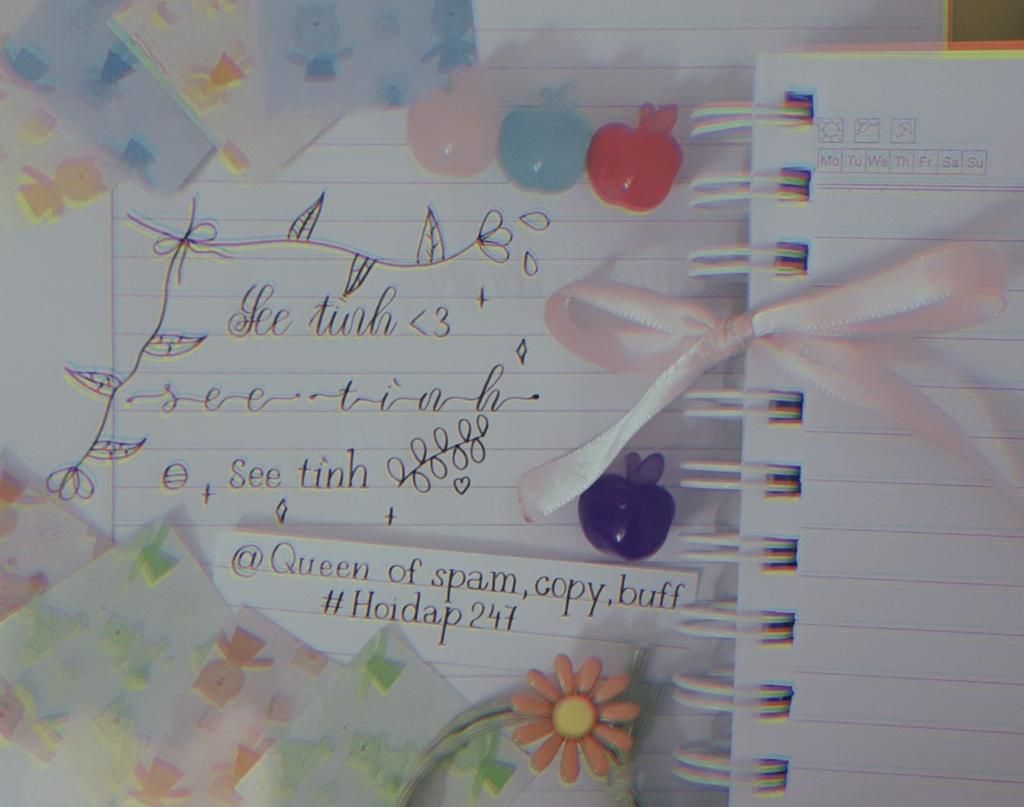 Mo Tu We Th Fr Sa Su
See tình <3
see tình
⊖, see tình
@Queen of spam, copy, buff
#Hoidap247